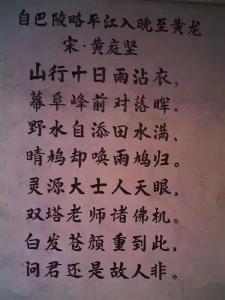 自巴陵略平江入晚至黄龙
宋·黄庭坚
山行十日雨沾衣，
幕阜峰前对落晖。
野水自添田水满，
晴鸠却唤雨鸠归。
灵源大士人天眼，
双塔老师诸佛机。
白发苍颜重到此，
问君还是故人非。